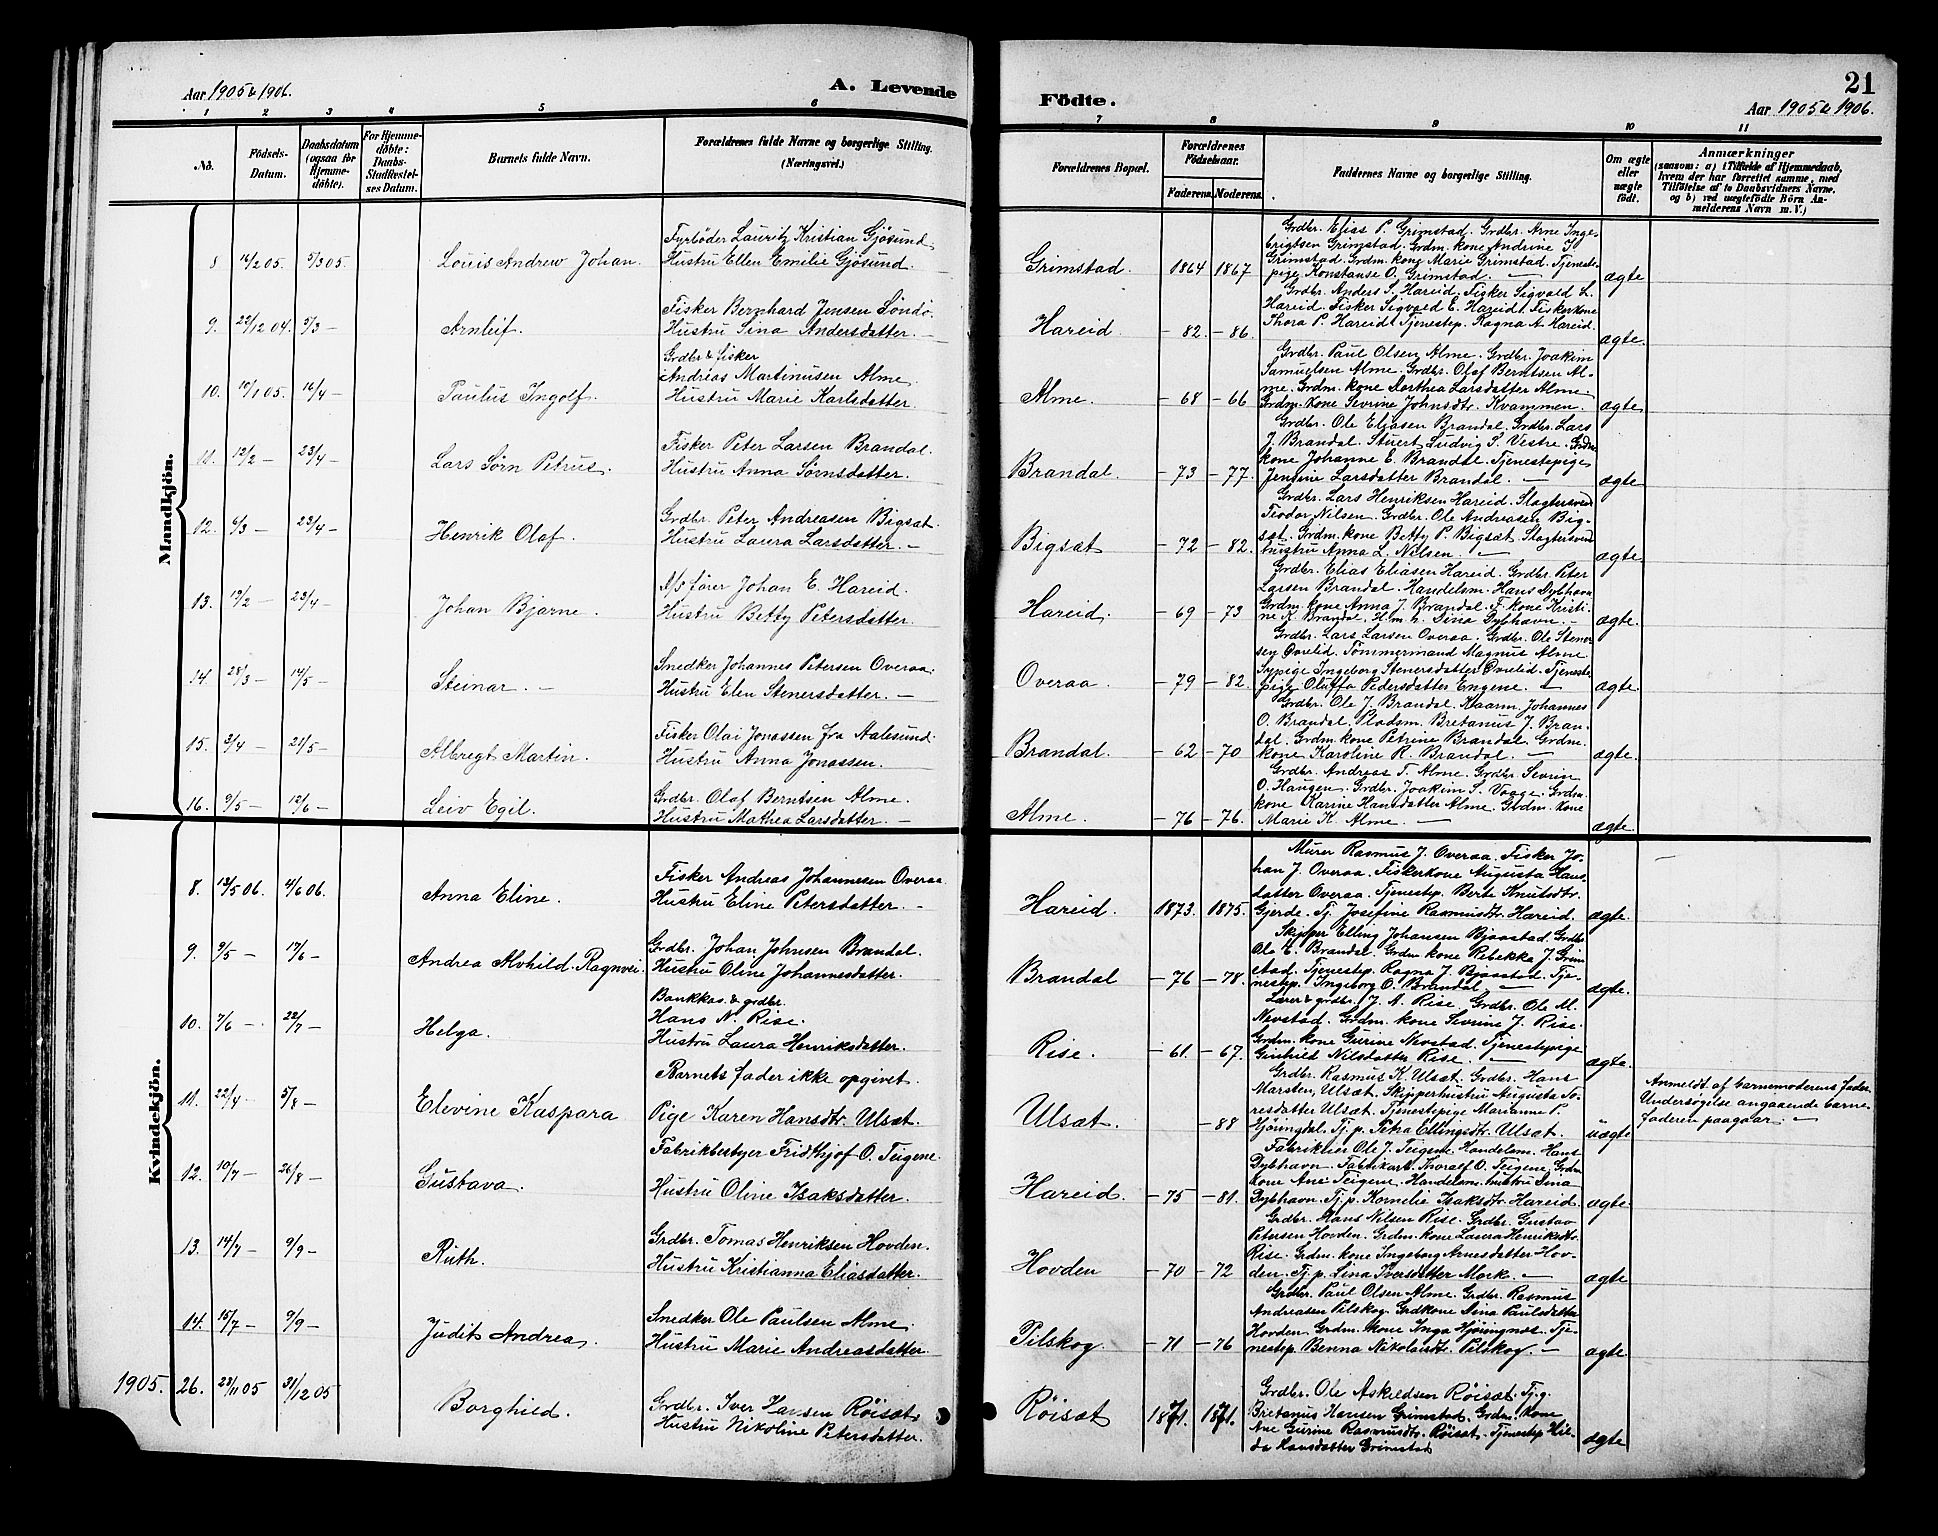 Aar 1905 & 1906.
A. Levende
1 2 3 4 5 6
No.
Födsels-
Datum.
Daabsdatum
(ogsaa for
Hjemme-
döbte).
For Hjemme-
döbte:
Daabs-
Stadfæstel-
ses Datum.
Barnets fulde Navn.
Forældrenes fulde Navne og borgerlige Stilling.
(Næringsvei.)
Mandkjön.
Fyrbøder Lauritz Kristian Gjøsund
8 16/2 05. 5/3 05 Louis Andrew Johan. Hustru Ellen Emilie Gjøsund.
Fisker Bernhard Jensen
9. 22/12 04. 5/3 — Arnleif. Hustru Sina Andersdatter. —
Grdbr. & fisker
Andreas Martinusen Alme.
10. 10/1 05. 16/4 — Paulus Ingolf. Hustru Marie Karlsdatter.
Fisker Peter Larsen Brandal.
11. 12/2 — 23/4 — Lars Sørn Petrus. Hustru Anna Sørnsdatter.
Grdbr. Peter Andreasen Bigsæt.
12. 6/3 — 23/4 — Henrik Olaf. Hustru Laura Larsdatter. —
fører Johan E. Hareid.
13. 19/2 — 23/4 — Johan Bjarne. Hustru Betty Petersdatter.
Snedker Johannes Petersen Overaa.
14. 28/3 — 14/5 — Steinar. — Hustru Elen Stenersdatter. —
Fisker Olai Jonassen fra Aalesund.
15. 2/4 — 21/5 — Albregt Martin. Hustru Anna Jonassen.
Grdbr. Olaf Berntsen Alme.
16. 9/5 — 12/6 — Leiv Egil. Hustru Mathea Larsdatter. —
Kvindekjön.
Fisker Andreas Johannesen Overaa.
8. 13/5 06. 4/6 06. Anna Eline. Hustru Eline Petersdatter. —
Grdbr. Johan Johnsen Brandal.
9. 9/5 — 17/6 — Andrea Alvhild Ragnvei. Hustru Oline Johannesdatter.
Bankkas. & grdbr.
Hans N. Rise.
10. 7/6 — 22/7 — Helga. Hustru Laura Henriksdatter.
Barnets fader ikke opgivet.
11. 22/4 — 5/8 — Elevine Kaspara Pige Karen Hansdtr. Ulsæt.
Fabrikbestyer Fridthjof O. Teigene.
12. 10/7 — 26/8 — Gustava. Hustru Oline Isaksdatter.
Grdbr. Tomas Henriksen Hovden.
13. 14/7 — 9/9 — Ruth. Hustru Kristianna Eliasdatter.
Snedker Ole Paulsen Alme.
14. 15/7 — 9/9 — Judit Andrea. Hustru Marie Andreasdatter.
1905. 26. 23/11 05 31/12 05 Borghild. Grdbr. Iver Hansen Røisæt.
Hustru Nikoline Petersdatter.
21
Födte.
Aar 1905 & 1906.
7 8 9 10 11
Forældrenes Bopæl.
Forældrenes
Födselsaar.
Faderens. Moderens.
Faddernes Navne og borgerlige Stilling.
Om ægte
eller
uægte
födt.
Anmærkninger
(saasom: a) i Tilfælde af Hjemmedaab,
hvem der har forrettet samme, med
Tilföielse af to Daabsvidners Navne,
og b) ved uægtefödte Börn An-
melderens Navn m. V.)
Grdbr. Elias P. Grimstad. Grdbr. Arne Inge-
brigtsen Grimstad. Grdm. kone Andrine J.
Grimstad. Grdm. kone Marie Grimstad. Tjeneste-
Grimstad. 1864 1867 pige Konstanse O. Grimstad. — ægte
Grdbr. Anders S. Hareid. Fisker Sigvald L.
Hareid. Fisker Sigvald E. Hareid. Fiskerkone
Hareid. — 82. — 86. Thora P. Hareid. Tjenestep. Ragna A. Hareid. ægte.
Grdbr. Paul Olsen Alme. Grdbr. Joakim
Samuelsen Alme. Grdbr. Olaf Berntsen Al-
me. Grdm. kone Dorthea Larsdatter Alme.
Alme. — 68 — 66 Grdm. kone Sevrine Johnsdtr. Kvammen. ægte
Grdbr. Ole Eliasen Brandal. Grdbr. Lars
J. Brandal. Stuert Ludvig S. Vestre. Grdm.
kone Johanne E. Brandal. Tjenestepige
Brandal. — 73 — 77. Jensine Larsdatter Brandal. — ægte
Grdbr. Lars Henriksen Hareid. Slagtersvend
Teodor Nilsen. Grdbr. Ole Andreasen Big-
sæt. Grdm. kone Betty P. Bigsæt. Slagtersvend
Bigsæt — 72 — 82. hustru Anna L. Nilsen. — ægte
Grdbr. Elias Eliasen Hareid. Grdbr. Peter
Larsen Brandal. Handelsm. Hans Dybhavn
Grdm. kone Anna J. Brandal. F. kone Kristi-
Hareid. — 69 — 73 ne K. Brandal. H.m. h. Sina Dybhavn. — ægte.
Grdbr. Lars Larsen Overaa. Grdbr. Ole Stener-
sen Øvrelid. Tømmermand Magnus Alme
Sypige Ingeborg Stenersdatter Øvrelid. Tjeneste-
Overaa. — 79 — 82. pige Oluffa Pedersdatter Engene. — ægte.
Grdbr. Ole J. Brandal. Kaarm. Johannes
O. Brandal. Pladsm. Bretanus J. Bran-
dal. Grdm. kone Petrine Brandal. Grdm.
Brandal. — 62 — 70 kone Karoline R. Brandal. — ægte.
Grdbr. Andreas T. Alme. Grdbr. Sevrin
O. Haugen. Grdbr. Joakim S. Vaage. Grdm.
kone Karine Hansdatter Alme. Grdm. kone
Alme. — 76 — 76. Marie K. Alme. — ægte.
Murer Rasmus J. Overaa. Fisker Jo-
han J. Overaa. Fiskerkone Augusta Hans-
datter Overaa. Tjenestep. Berte Knutsdtr.
Hareid. 1873. 1875. Gjerde. Tj. Josefine Rasmusdtr. Hareid. ægte.
Skipper Elling Johansen Bjaastad. Grdbr.
Ole E. Brandal. Grdm kone Rebekka J. Grim-
stad. Tjenestep. Ragna J. Bjaastad. Tje-
Brandal — 76 — 78. nestep. Ingeborg O. Brandal. — ægte.
Lærer & grdbr. J. N. Rise. Grdbr. Ole M.
Nevstad. Grdm. kone Sevrine J. Rise.
Grdm. kone Gurine Nevstad. Tjenestepige
Rise. — 61. — 67. Ginhild Nilsdatter Rise. — ægte.
Grdbr. Rasmus K. Ulsæt. Grdbr. Hans
Marsten, Ulsæt. Skipperhustru Augusta To-
resdatter Ulsæt. Tjenestepige Marianne P.
Ulsæt. — 88 Hjøringdal. Tj. p. Petra Ellingsdtr. Ulsæt. uægte
Anmeldt af barnemoderens fader.
Undersøgelse angaaende barne-
faderen paagaar. —
Fabrikeier Ole J. Teigene. Handelsm. Hans
Dybhavn. Fabrikarb. Thoralf O. Teigene. Grdm.
kone Ane Teigene. Handelsm. hustru Sina
Hareid. — 75 — 81. Dybhavn. Tj. p. Kornelie Isaksdtr. Hareid. ægte.
Grdbr. Hans Nilsen Rise. Grdbr. Gustav
Petersen Hovden. Grdm. kone Laura Henriksdtr.
Rise. Grdm. kone Ingeborg Arnesdatter Hov-
Hovden — 70 — 72 den. Tj. p. Lina Iversdatter Mork. — ægte
Grdbr. Paul Olsen Alme. Grdbr. Rasmus
Andreasen Pilskog. Grdkone Nina Paulsdatter
Hovden. Grdm. kone Inga Hjøringnes. Tje-
Pilskog. — 71 — 76 nestep. Benna Nikolaisdt. Pilskog. — ægte
Grdbr. Ole Askildsen Røisæt. Tj. g.
Røisæt 1871. 1871. Bretanus Hansen Grimstad. Grdm. kone
Ane Gurine Rasmusdtr. Røisæt. Tjenestep Hil-
da Hansdatter Grimstad ægte